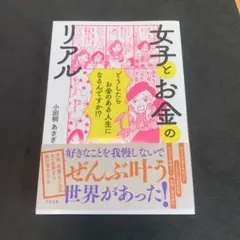 女子とお金の
リアル
どうしたら
お金のある人生に
なるんですか!?
小田桐 あさぎ
好きなことを我慢しないで
ぜんぶ叶う
世界があった!